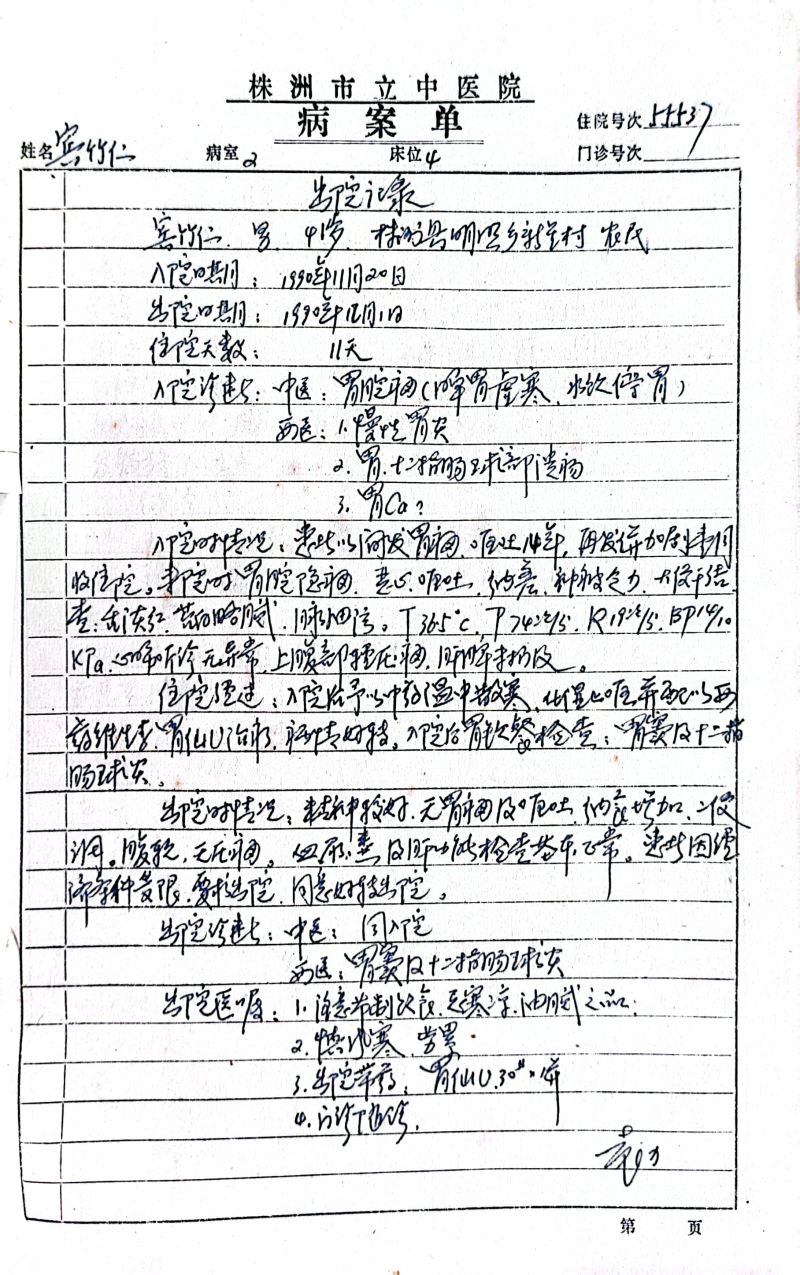 株洲市立中医院
病案单
住院号次 55537
姓名 宾竹仁 病室 2 床位 4 门诊号次
出院记录
宾竹仁 男 41岁 株洲县明照乡 村 农民
入院日期：1990年11月20日
出院日期：1990年12月1日
住院天数：11天
入院诊断：中医：胃脘痛（脾胃虚寒、水饮停胃）
西医：1.慢性胃炎
2.胃.十二指肠球部溃疡
3.胃Ca？
入院时情况：患者以间发胃痛、呕吐14年，再发并加剧 
收住院。来院时胃脘隐痛，恶心呕吐，纳差，神疲乏力，大便干结
查：舌淡红，苔白略腻，脉细 。T 36.5℃，P 74次/分，R 19次/分，BP 14/10
KPa，心肺听诊无异常，上腹部轻压痛，肝脾未扪及。
住院经过：入院后予以中药温中散寒，化湿止呕并配以西
药维生素、胃仙U治疗，病情好转。入院后胃钡餐检查：胃窦及十二指
肠球炎。
出院时情况：精神较好，无胃痛及呕吐，纳食增加，二便
调。腹软，无压痛。血尿 及肝功能检查基本正常。患者因经
济条件受限，要求出院，同意好转出院。
出院诊断：中医：同入院
西医：胃窦及十二指肠球炎
出院医嘱：1.注意节制饮食，忌寒凉、油腻之品.
2.慎风寒、劳累
3.出院带药：胃仙U 30#×1瓶
4.门诊随诊.
第 页